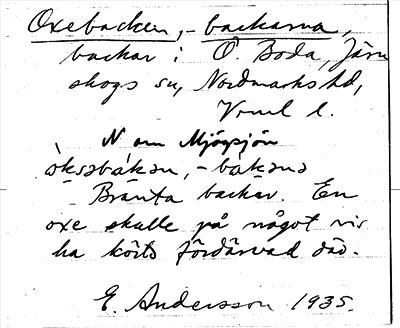 Oxebacken, -backarna,
backar i Ö. Boda, Järn
skogs sn, Nordmarks hd,
Vrml l.
N om Mjögsjön
òksəbàkən, -bàkənə
Branta backar. En
oxe skulle på något vis
ha körts fördärvad där.
E. Andersson 1935.